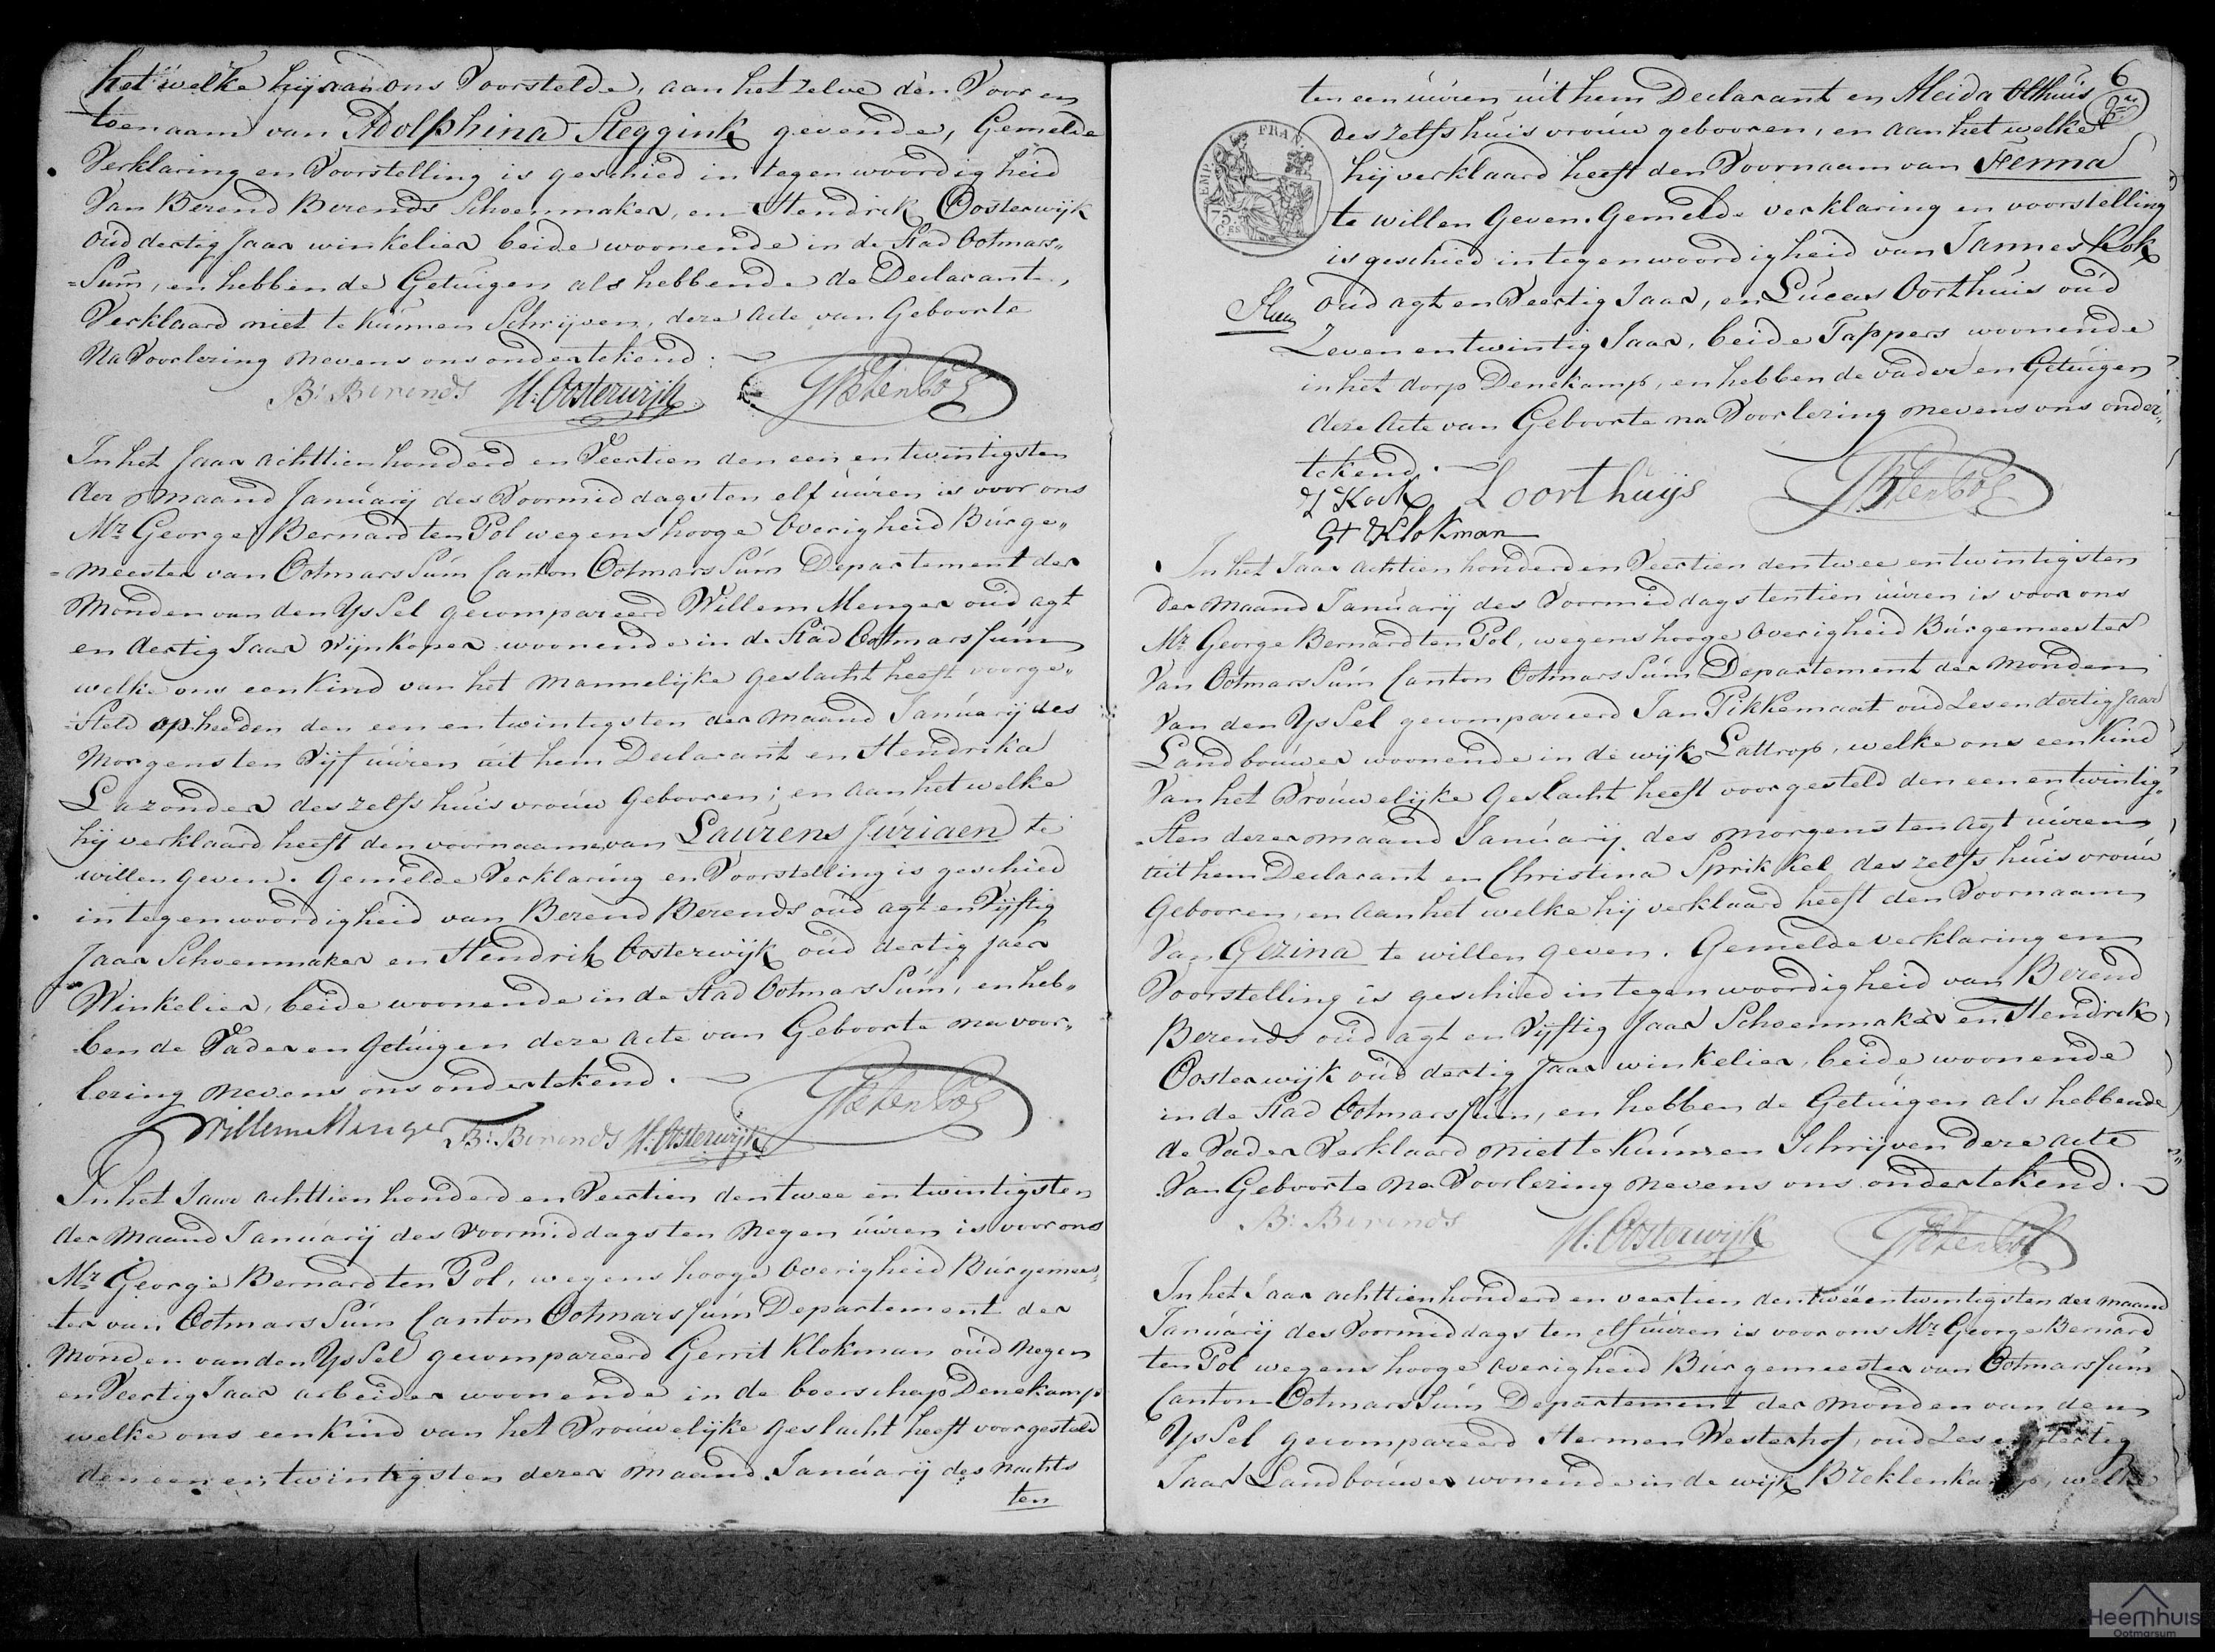 het welke hij aan ons Voorstelde, aan het zelve den Voor en
toenaam van Adolphina Steggink gevende, Gemelde
Verklaring en Voorstelling is geschied in tegenwoordigheid
Van Berend Berends Schoenmaker, en Hendrik Oosterwijk
oud dertig Jaar winkelier beide woonende in de Stad Ootmars„
„Sum, en hebben de Getuigen als hebbende de Declarante,
Verklaard niet te kunnen Schrijven, deze Acte van Geboorte
Na Voorlezing nevens ons ondertekend.
B: Berends H: Oosterwijk GB ten Pol
In het Jaar achttien honderd en Veertien den een en twintigsten
der Maand Januarij des Voormiddags ten elf uuren is voor ons
Mr George Bernard ten Pol wegens hooge Overigheid Burge„
„meester van OotmarsSum Canton OotmarsSum Departement der
Monden van den YsSel gecompareerd Willem Menger oud agt
en dertig Jaar Wijnkoper woonende in de Stad Ootmarssum
welke ons een Kind van het Mannelijke geslacht heeft voorge„
„Steld op heeden den een en twintigsten der maand Januarij des
Morgens ten Vijf uuren uit hem Declarant en Hendrika
Lazonder deszelfs huisvrouw Gebooren; en aan het welke
hij verklaard heeft den voornaame van Laurens Juriaen te
willen geven. Gemelde Verklaring en Voorstelling is geschied
in tegenwoordigheid van Berend Berends oud agt en Vijftig
Jaar Schoenmaker en Hendrik Oosterwijk oud dertig Jaar
Winkelier, beide woonende in de Stad OotmarsSum, en heb„
„ben de Vader en Getuigen deze Acte van Geboorte na voor„
lezing nevens ons ondertekend.
Willem Menger B: Berends H: Oosterwijk GB ten Pol
In het Jaar achttien honderd en Veertien den twee en twintigsten
der Maand Januarij des Voormiddags ten Negen uuren is voor ons
Mr George Bernard ten Pol, wegens hooge Overigheid Burgemees„
„ter van OotmarsSum Canton Ootmarssum Departement der
Monden van den YsSel gecompareerd Gerrit Klokman oud Negen
en Veertig Jaar arbeider woonende in de boerschap Denekamp
welke ons een kind van het Vrouwelijke geslacht heeft voorgesteld
den een en twintigsten dezer Maand Januarij des Nachts
ten
6
ten een uuren uit hem Declarant en Aleida Olthuis
deszelfs huisvrouw gebooren, en aan het welke
TEMP. FRAN.
75 CES
hij verklaard heeft den Voornaam van Fenna
te willen Geven. Gemelde verklaring en voorstelling
is geschied in tegenwoordigheid van Jannes Kok
oud agt en Veertig Jaar, en Lucas Oorthuis oud
Zeven en twintig Jaar, beide Tappers woonende
in het dorp Denekamp, en hebben de vader en Getuigen
deze Acte van Geboorte na Voorlezing nevens ons onder„
tekend.
J Kock L oorthuys GB ten Pol
Gt Klokman
In het Jaar achtien honderd en Veertien den twee en twintigsten
der Maand Januarij des Voormiddags ten tien uuren is voor ons
Mr George Bernard ten Pol, wegens hooge Overigheid Burgemeester
Van OotmarsSum Canton OotmarsSum Departement der Monden
Van den YsSel gecompareerd Jan Pikkemaat oud Zes en dertig Jaar
Landbouwer woonende in de wijk Lattrop, welke ons een Kind
Van het Vrouwelijke Geslacht heeft voorgesteld den een en twintig„
„Sten dezer maand Januarij des Morgens ten Agt uuren
uit hem Declarant en Christina Sprikkel deszelfs huisvrouw
Gebooren, en aan het welke hij verklaard heeft den Voornaam
Van Gezina te willen geven. Gemelde verklaring en
Voorstelling is geschied in tegenwoordigheid van Berend
Berends oud agt en Vijftig Jaar Schoenmaker en Hendrik
Oosterwijk oud dertig Jaar winkelier, beide woonende
in de Stad Ootmarssum, en hebben de Getuigen als hebbende
de Vader Verklaard niet te Kunnen Schrijven deze acte
Van Geboorte Na Voorlezing nevens ons ondertekend.
B: Berends H: Oosterwijk GB ten Pol
In het Jaar achttien honderd en veertien den twee en twintigsten der maand
Januarij des Voormiddags ten elf uuren is voor ons Mr George Bernard
ten Pol wegens hooge Overigheid Burgemeester van Ootmarssum
Canton OotmarsSum Departement der Monden van den
YsSel gecompareerd Hermen Westerhof, oud Zes en dertig
Jaar Landbouwer wonende in de wijk Breklenkamp, welke
Heemhuis
Ootmarsum